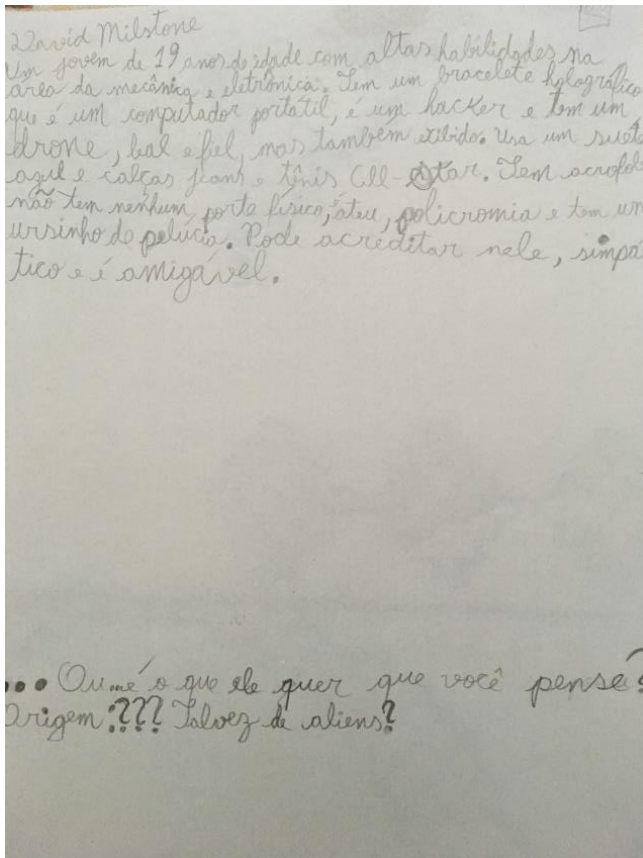 David Milstone
Um jovem de 19 anos de idade com altas habilidades na
área da mecânica e eletrônica. Tem um bracelete holográfico
que é um computador portatil, é um hacker e tem um
drone, leal e fiel, mas também exibido. Usa um suéte
azul e calças jeans e tênis All-Star. Tem acrofob
não tem nenhum porte fisico, ateu, policromia e tem um
ursinho de pelúcia. Pode acreditar nele, simpa
tico e é amigável.
... Ou é o que ele quer que você pense?
Origem: ??? Talvez de aliens?